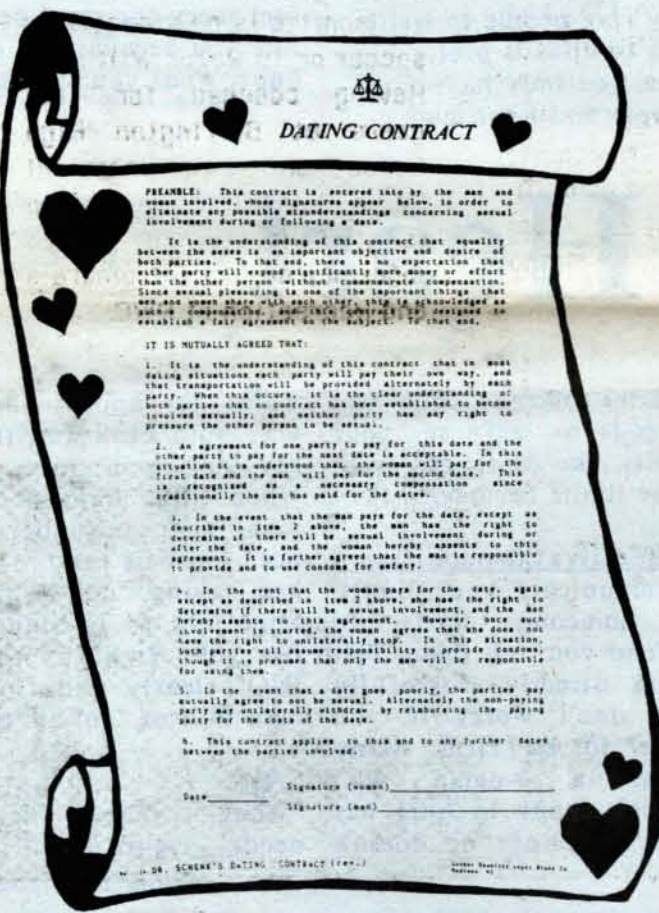 DATING CONTRACT
PREAMBLE: This contract is entered into by the man and
woman involved, whose signatures appear below, in order to
eliminate any possible misunderstandings concerning sexual
involvement during or following a date.
It is the understanding of this contract that equality
between the sexes is an important objective and desire of
both parties. To that end, there is no expectation that
either party will expend significantly more money or effort
than the other person without commensurate compensation.
Since sexual pleasuring is one of the important things that
men and women share with each other, this is acknowledged as
such compensation, and this contract is designed to
establish a fair agreement on the subject. To that end,
IT IS MUTUALLY AGREED THAT:
1. It is the understanding of this contract that in most
dating situations each party will pay their own way, and
that transportation will be provided alternately by each
party. When this occurs, it is the clear understanding of
both parties that no contract has been established to become
involved sexually, and neither party has any right to
pressure the other person otherwise.
2. An agreement for one party to pay for this date and the
other party to pay for the next date is acceptable. In this
situation it is understood that the woman will pay for the
first date and the man will pay for the second date. This
is recognized as necessary compensation since
traditionally the man has paid for the date.
3. In the event that the man pays for the date, except as
described in item 2 above, the man has the right to
determine if there will be sexual involvement during or
after the date, and the woman hereby assents to this
agreement. It is further agreed that the man is responsible
to provide and to use condoms for safety.
4. In the event that the woman pays for the date, again
except as described in item 2 above, she has the right to
determine if there will be sexual involvement, and the man
hereby assents to this agreement. However, once sexual
involvement is started, the woman agrees that she does not
have the right to unilaterally stop. In this situation,
both parties will assume responsibility to provide condoms,
though it is presumed that only the man will be responsible
for using it.
5. In the event that a date goes poorly, the parties may
mutually agree to not be sexual. Alternately the non-paying
party may unilaterally withdraw by reimbursing the paying
party for the costs of the date.
6. This contract applies to this and to any further dates
between the parties involved.
Signature (woman)
Date
Signature (man)
DR. SCHENK'S DATING CONTRACT (rev.)
Legal Blank Co
Madison, WI